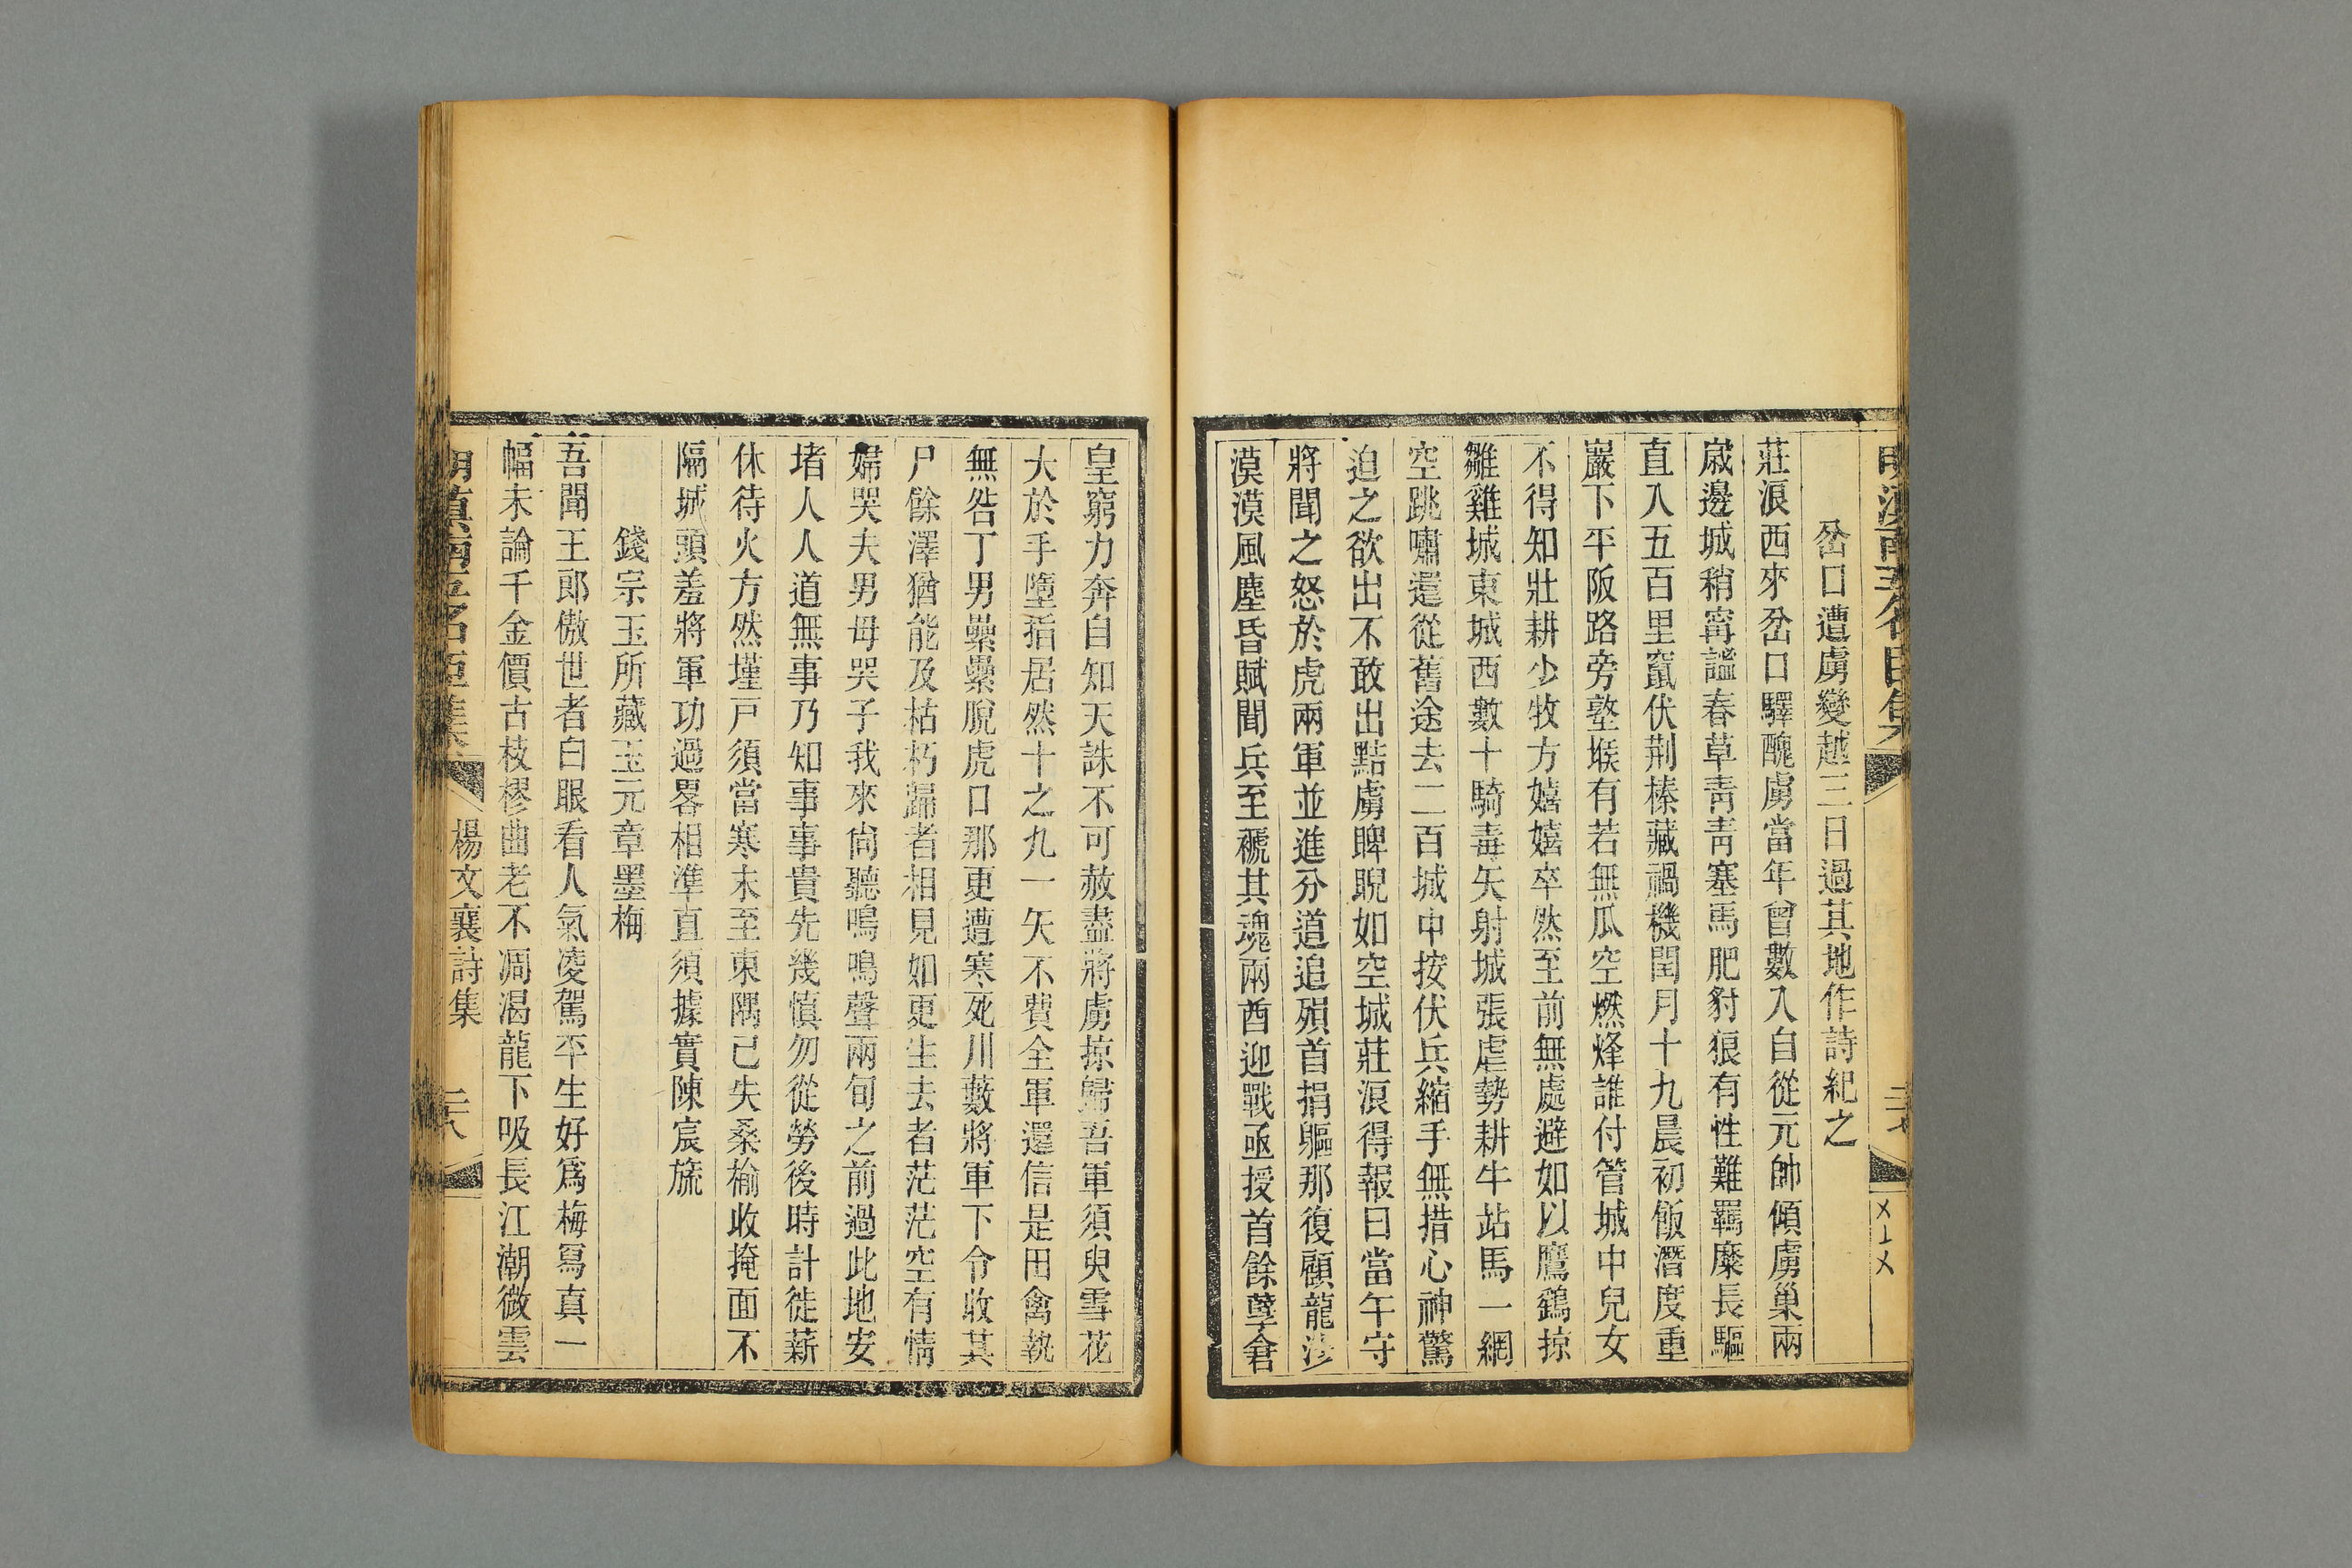 岔口遭虜變越三日過其地作詩紀之
莊浪西來岔口驛醜虜當年曾數入自從元帥傾虜巢兩
歲邊城稍寗謐春草靑靑塞馬肥豺狼有性難羈縻長驅
直入五百里竄伏荆榛藏禍機閏月十九晨初飯潛度重
巖下平阪路旁墪堠有若無瓜空燃烽誰付管城中兒女
不得知壯耕少牧方嬉嬉卒然至前無處避如以鷹鷂掠
雛雞城東城西數十騎毒矢射城張虐勢耕牛站馬一網
空跳嘯還從舊途去二百城中按伏兵縮手無措心神驚
迫之欲出不敢出黠虜睥睨如空城莊浪得報日當午守
將聞之怒於虎兩軍並進分道追殞首捐軀那復顧龍沙
漠漠風塵昏賦聞兵至褫其魂兩酋迎戰亟授首餘孽倉
皇窮力奔自知天誅不可赦盡將虜掠歸吾軍須臾雪花
大於手墮指居然十之九一矢不費全軍還信是田禽執
無咎丁男纍纍脫虎口那更遭寒死川藪將軍下令收其
尸餘澤猶能及枯朽歸者相見如更生去者茫茫空有情
婦哭夫男母哭子我來尙聽嗚嗚聲兩旬之前過此地安
堵人人道無事乃知事事貴先幾愼勿從勞後時計徙薪
休待火方然墐戸須當寒未至東隅已失桑榆收掩面不
隔城頭羞將軍功過畧相準直須據實陳宸旒
錢宗玉所藏王元章墨梅
吾聞王郎傲世者白眼看人氣凌駕平生好爲梅冩真一
幅未論千金價古枝樛曲老不凋渴龍下吸長江潮微雲
楊文襄詩集
二八